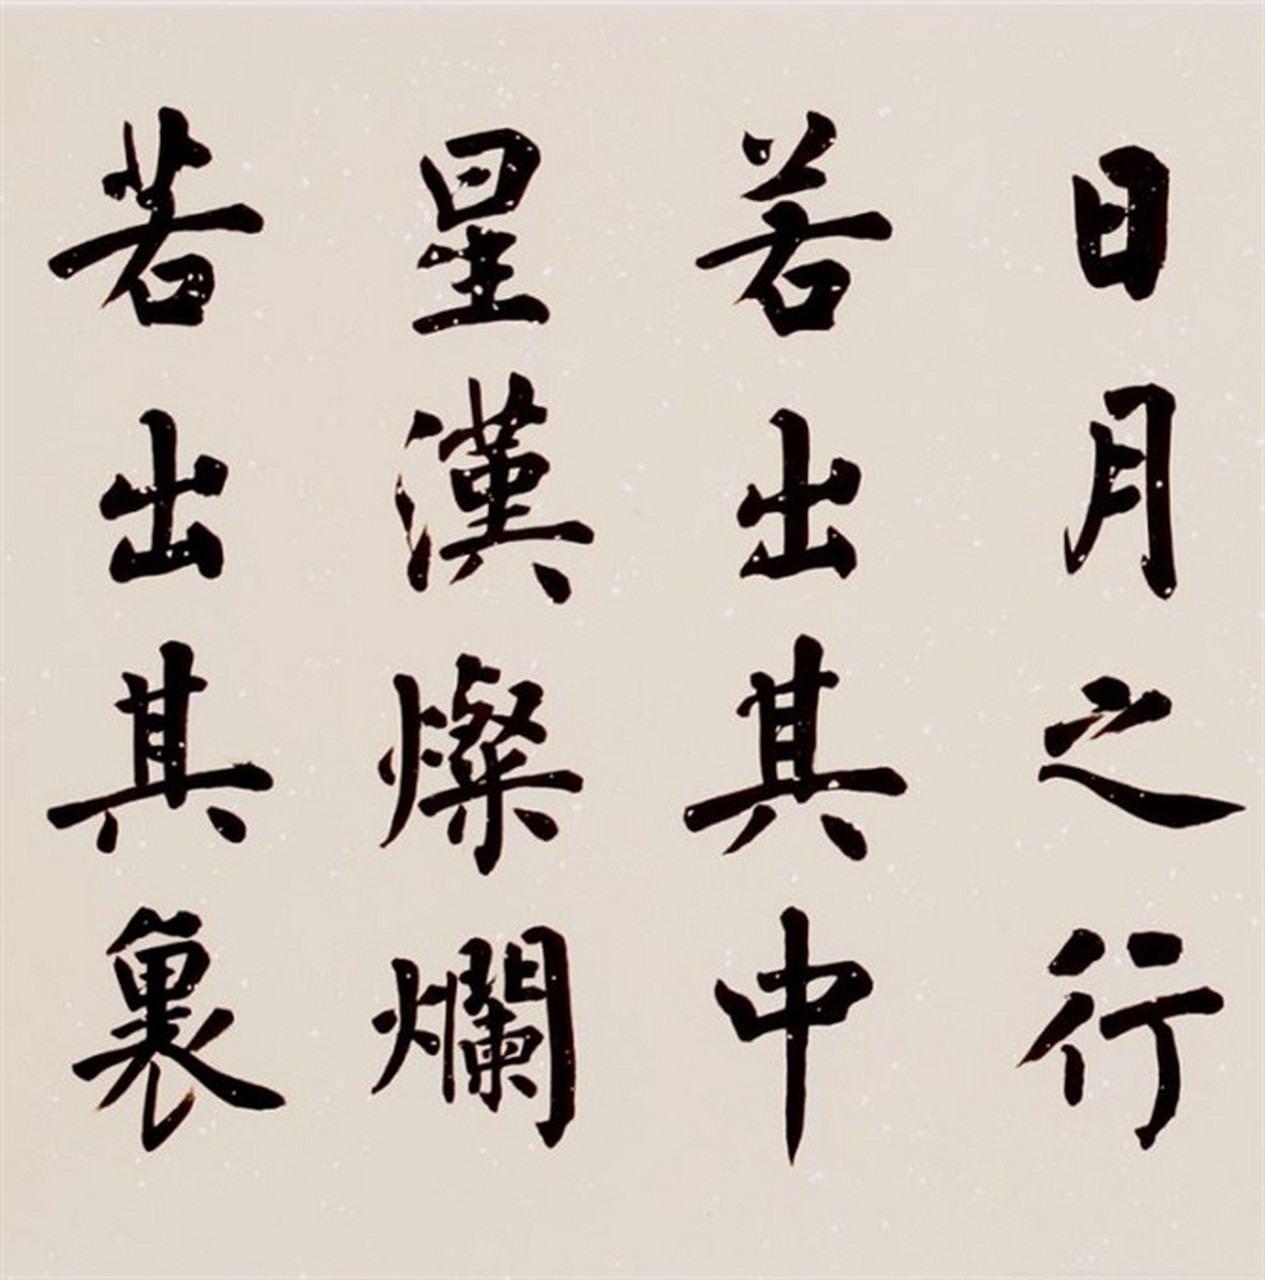 日月之行
若出其中
星漢燦爛
若出其裏